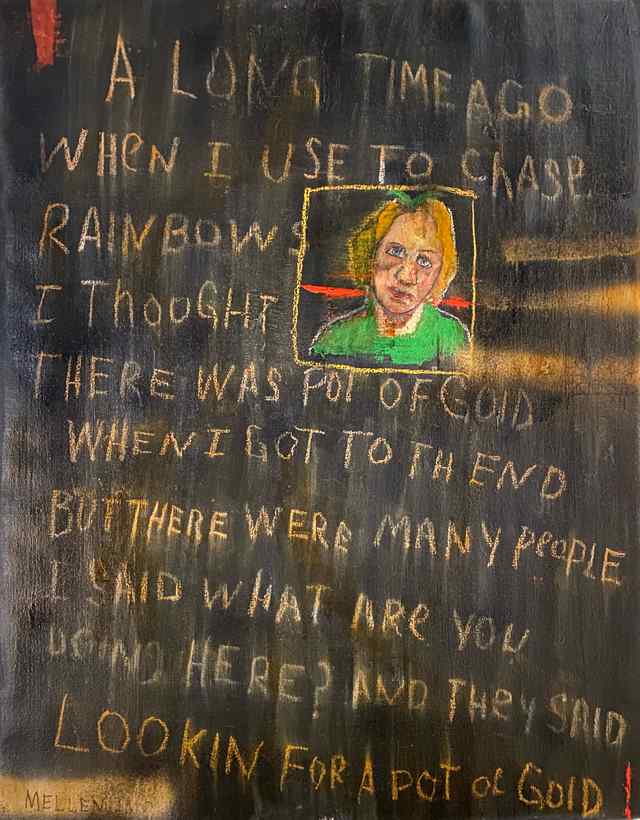 A LONG TIME AGO
WHeN I USE TO CHASE
RAINBOWS
I THOUGHT
THERE WAS POT OF GOlD
WHEN I GOT TO TH END
BUT THERE WERE MANY PeoPLE
I SAID WHAT ARe YOU
DOING HERE? AND THeY SAID
LOOKIN FOR A POT OF GOlD !